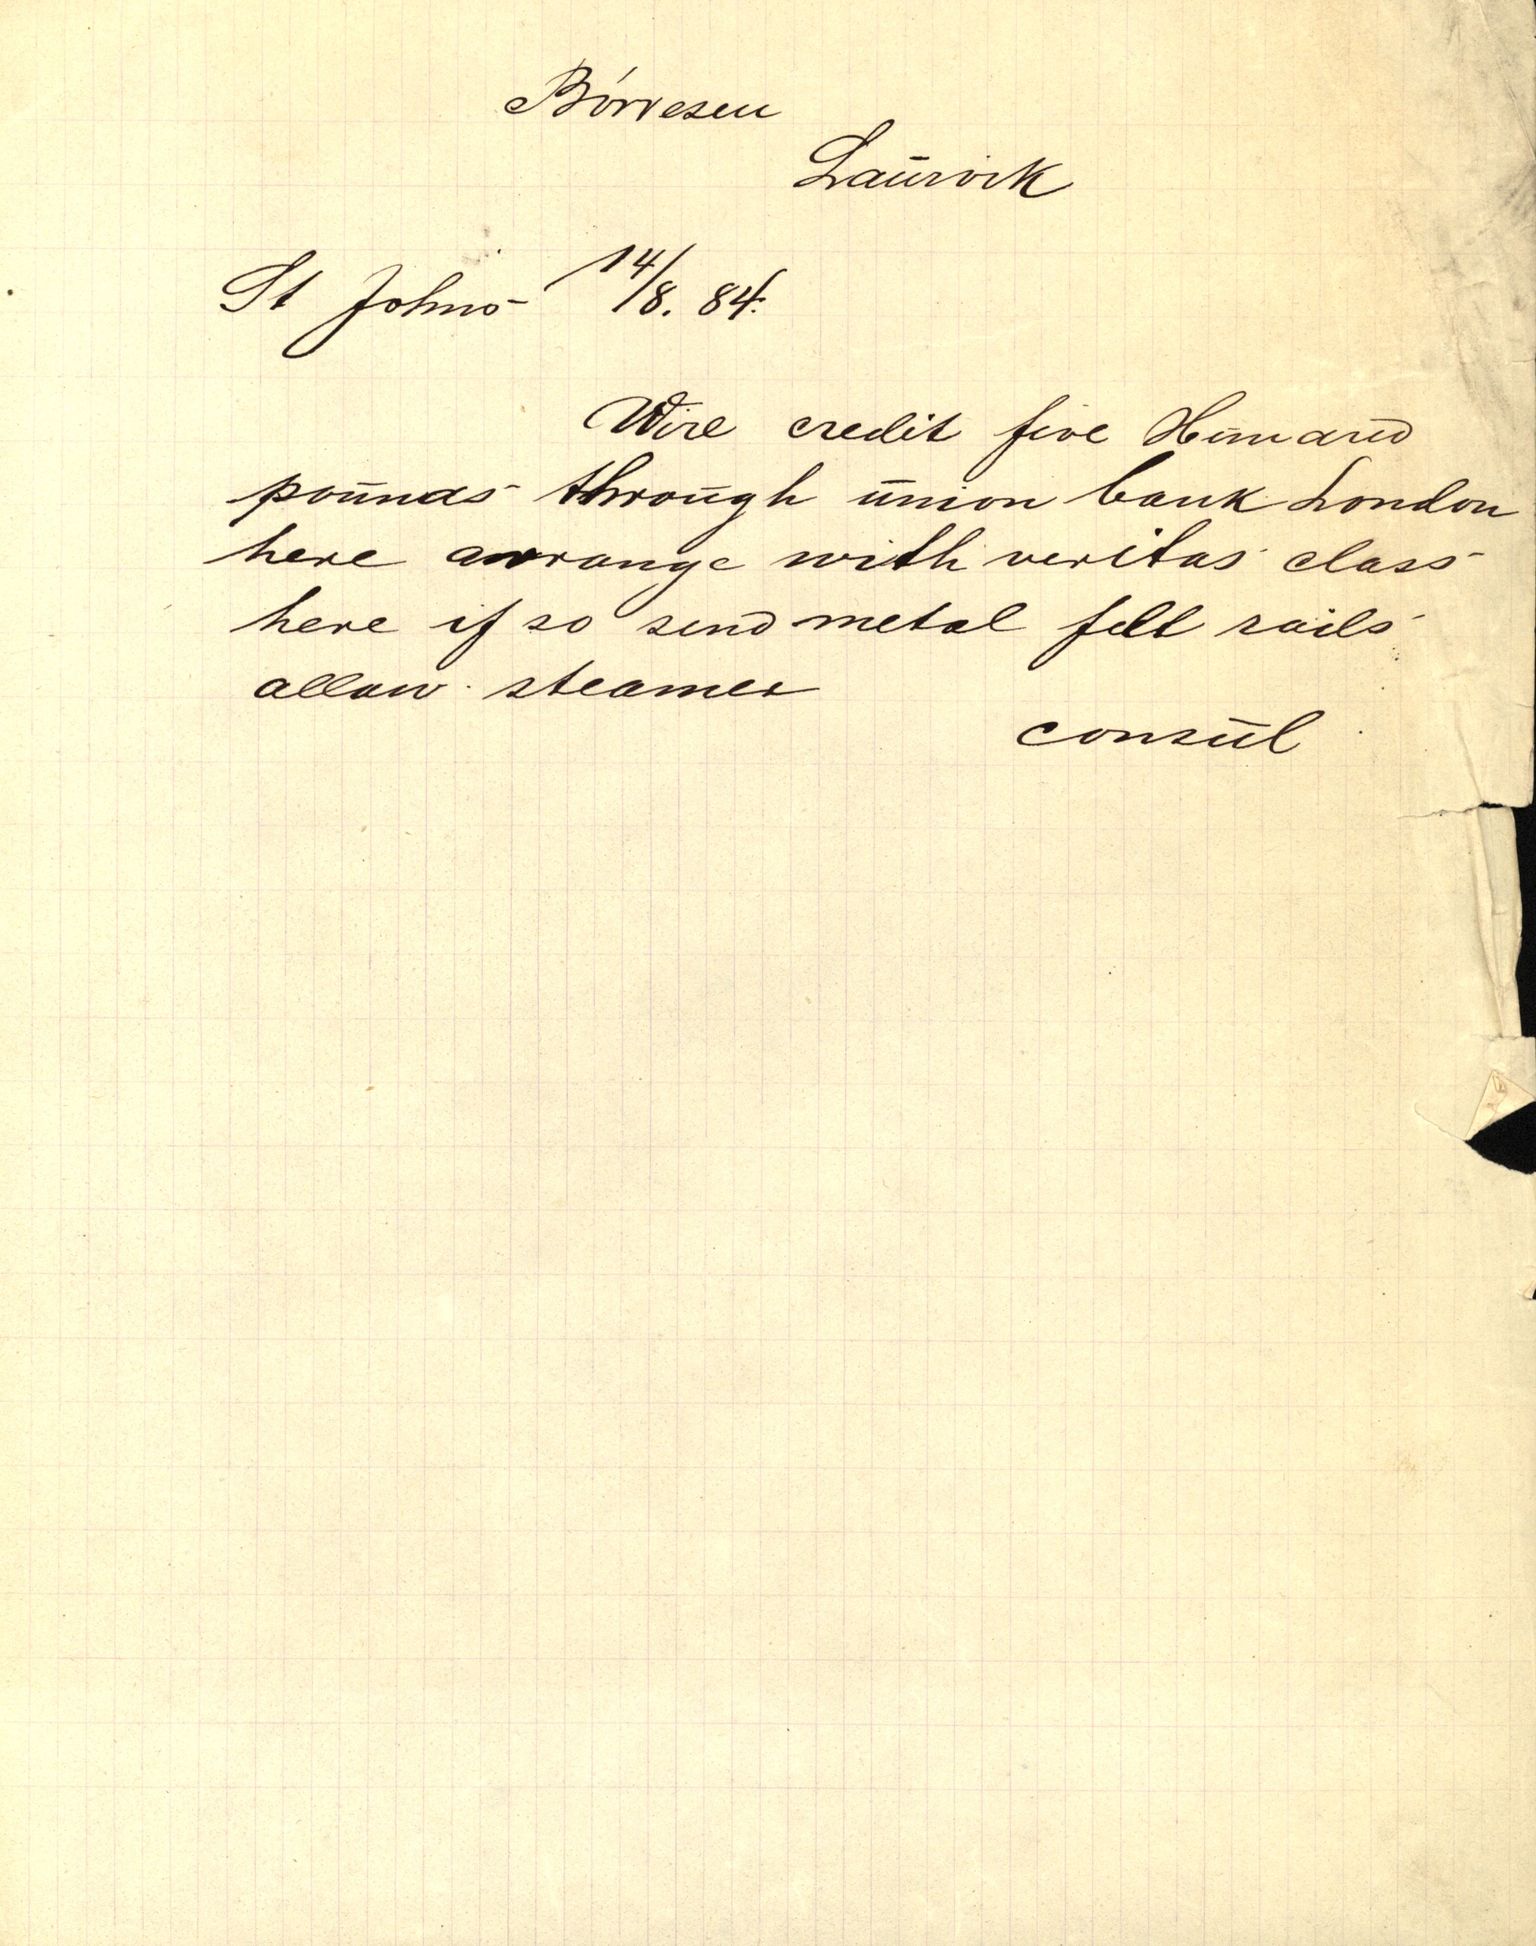 Børresen
Laurvik
St Johns 14/8. 84.
Wire credit five Hundred
pounds through union bank London
here arrange with veritas class
here if so send metal felt sails
allow steamer
consul